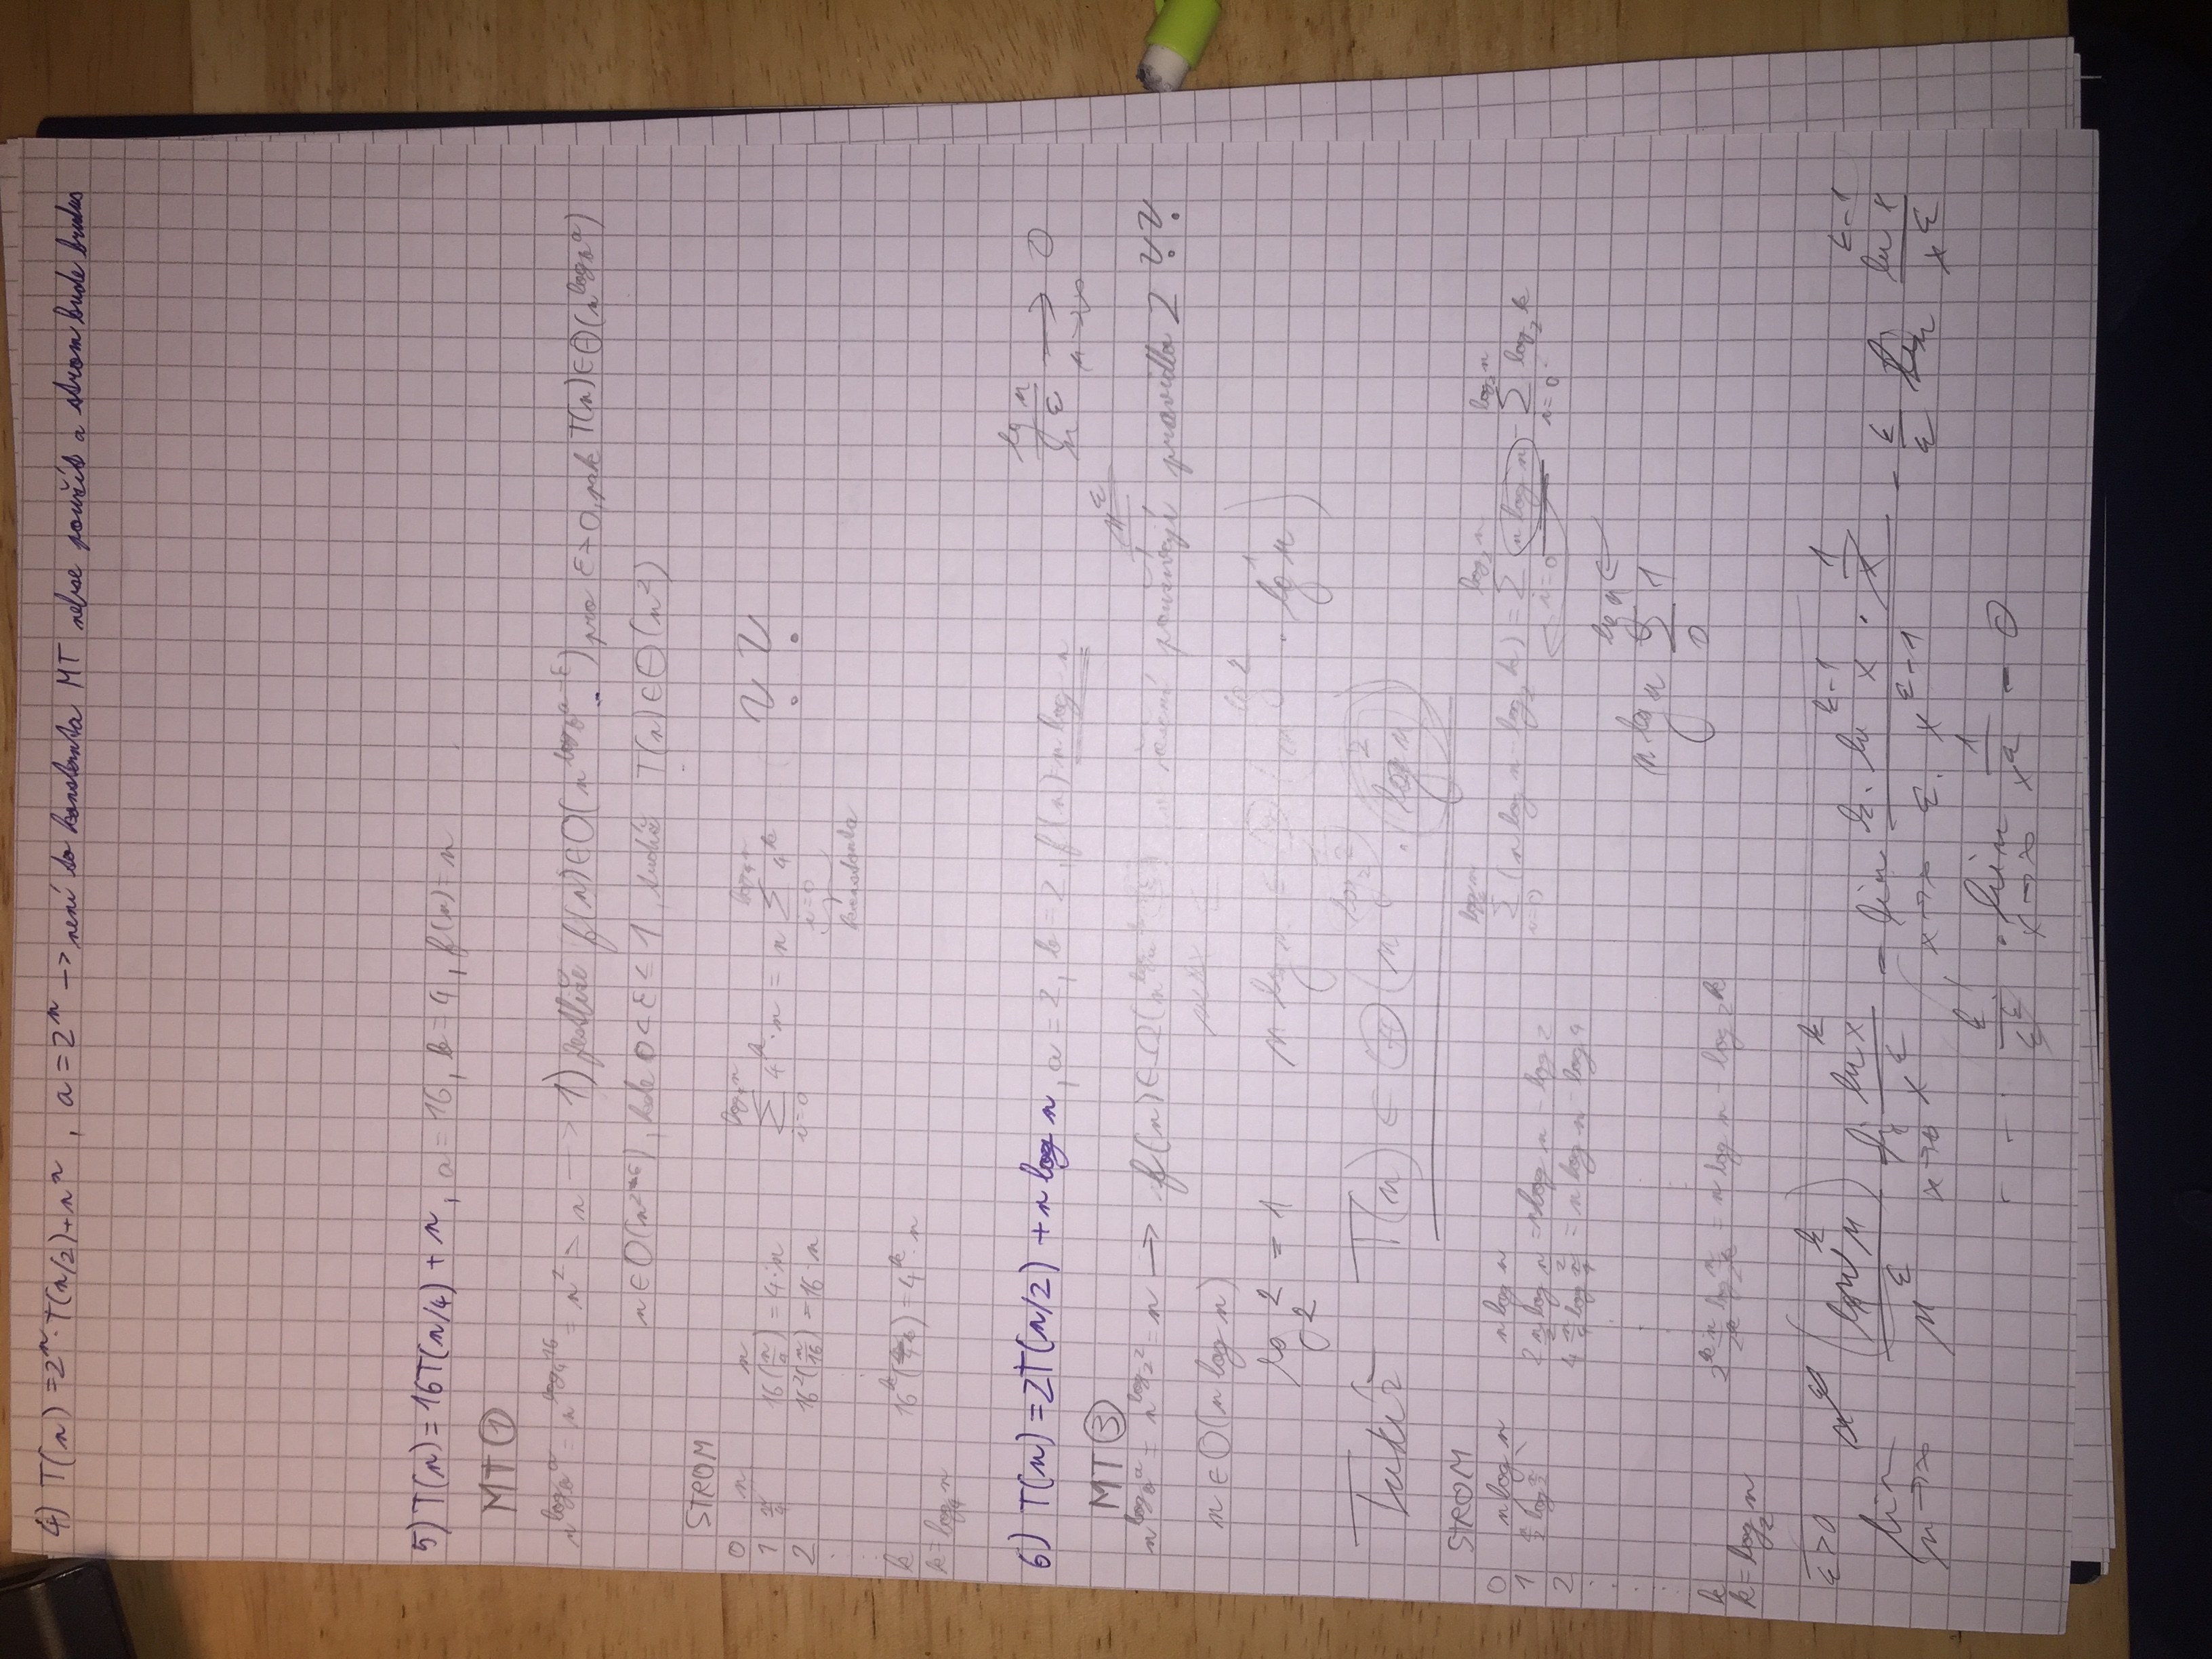 4) T(n) = 2^n · T(n/2) + n^n , a = 2^n → není to konstanta MT nelze použít a strom bude
5) T(n) = 16T(n/4) + n, a = 16, b = 4, f(n) = n
MT ①
n^{log_b a} = n^{log_4 16} = n^2 > n → 1) jestliže f(n) ∈ O(n^{log_b a - ε}) pro ε > 0, pak T(n) ∈ Θ(n^{log_b a})
n ∈ O(n^{2-ε}), kde 0 < ε ≤ 1, tudíž T(n) ∈ Θ(n^2)
STROM
0 n n
1 n/4 16(n/4) = 4·n ∑_{i=0}^{log_4 n} 4^k · n = n ∑_{i=0}^{log_4 n} 4^k ??
2 16^2(n/16) = 16·n konstanta
k 16^k ( ) = 4^k · n
k = log_4 n
6) T(n) = 2T(n/2) + n log n, a = 2, b = 2, f(n) = n log n
lg n / n^ε → 0
n→∞
n^ε
MT ③
n^{log_b a} = n^{log_2 2} = n → f(n) ∈ Ω(n řešení používají pravidlo 2 ??
n ∈ O(n log n)
lg_2 2 = 1 n lg n ∈ Θ(n^{lg 2} · lg^1 n)
Tudíž T(n) ∈ Θ(n^{log_2 2} · log^2 n)
STROM
0 n log n n log n
1 n/2 log n/2 2 n/2 log n/2 = n log n - log 2
2 4 n/4 log n/4 = n log n - log 4
∑_{i=0}^{log_2 n} (n log n - log_2 k) = ∑_{i=0}^{log_2 n} n log n - ∑_{i=0}^{log_2 n} log_2 k
n lg n ∑_0^{lg n} 1
k 2^k n/2^k log n/2^k = n log n - log 2^k
k = log_2 n
ε > 0
lim_{n→∞} (log n)^k / n^ε lim_{x→∞} ln^k x / x^ε = lim_{x→∞} k · ln^{k-1} x · 1/x / ε · x^{ε-1} = k/ε lim ln^{k-1} x / x^ε
· · · k!/ε^k · lim_{x→∞} 1/x^ε = 0